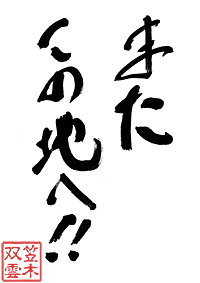 また
この地へ!!
笠木
双雲